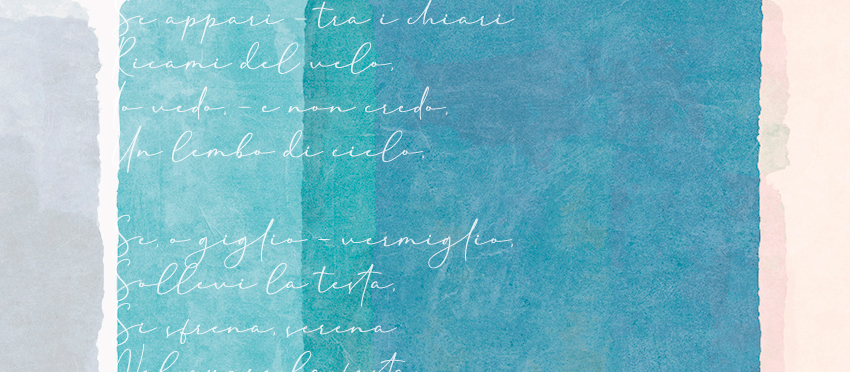 Se appari – tra i chiari
Ricami del velo,
Io vedo, – e non credo,
Un lembo di cielo.
Se, o giglio – vermiglio,
Sollevi la testa,
Si sfrena, serena
Nel cuore la festa